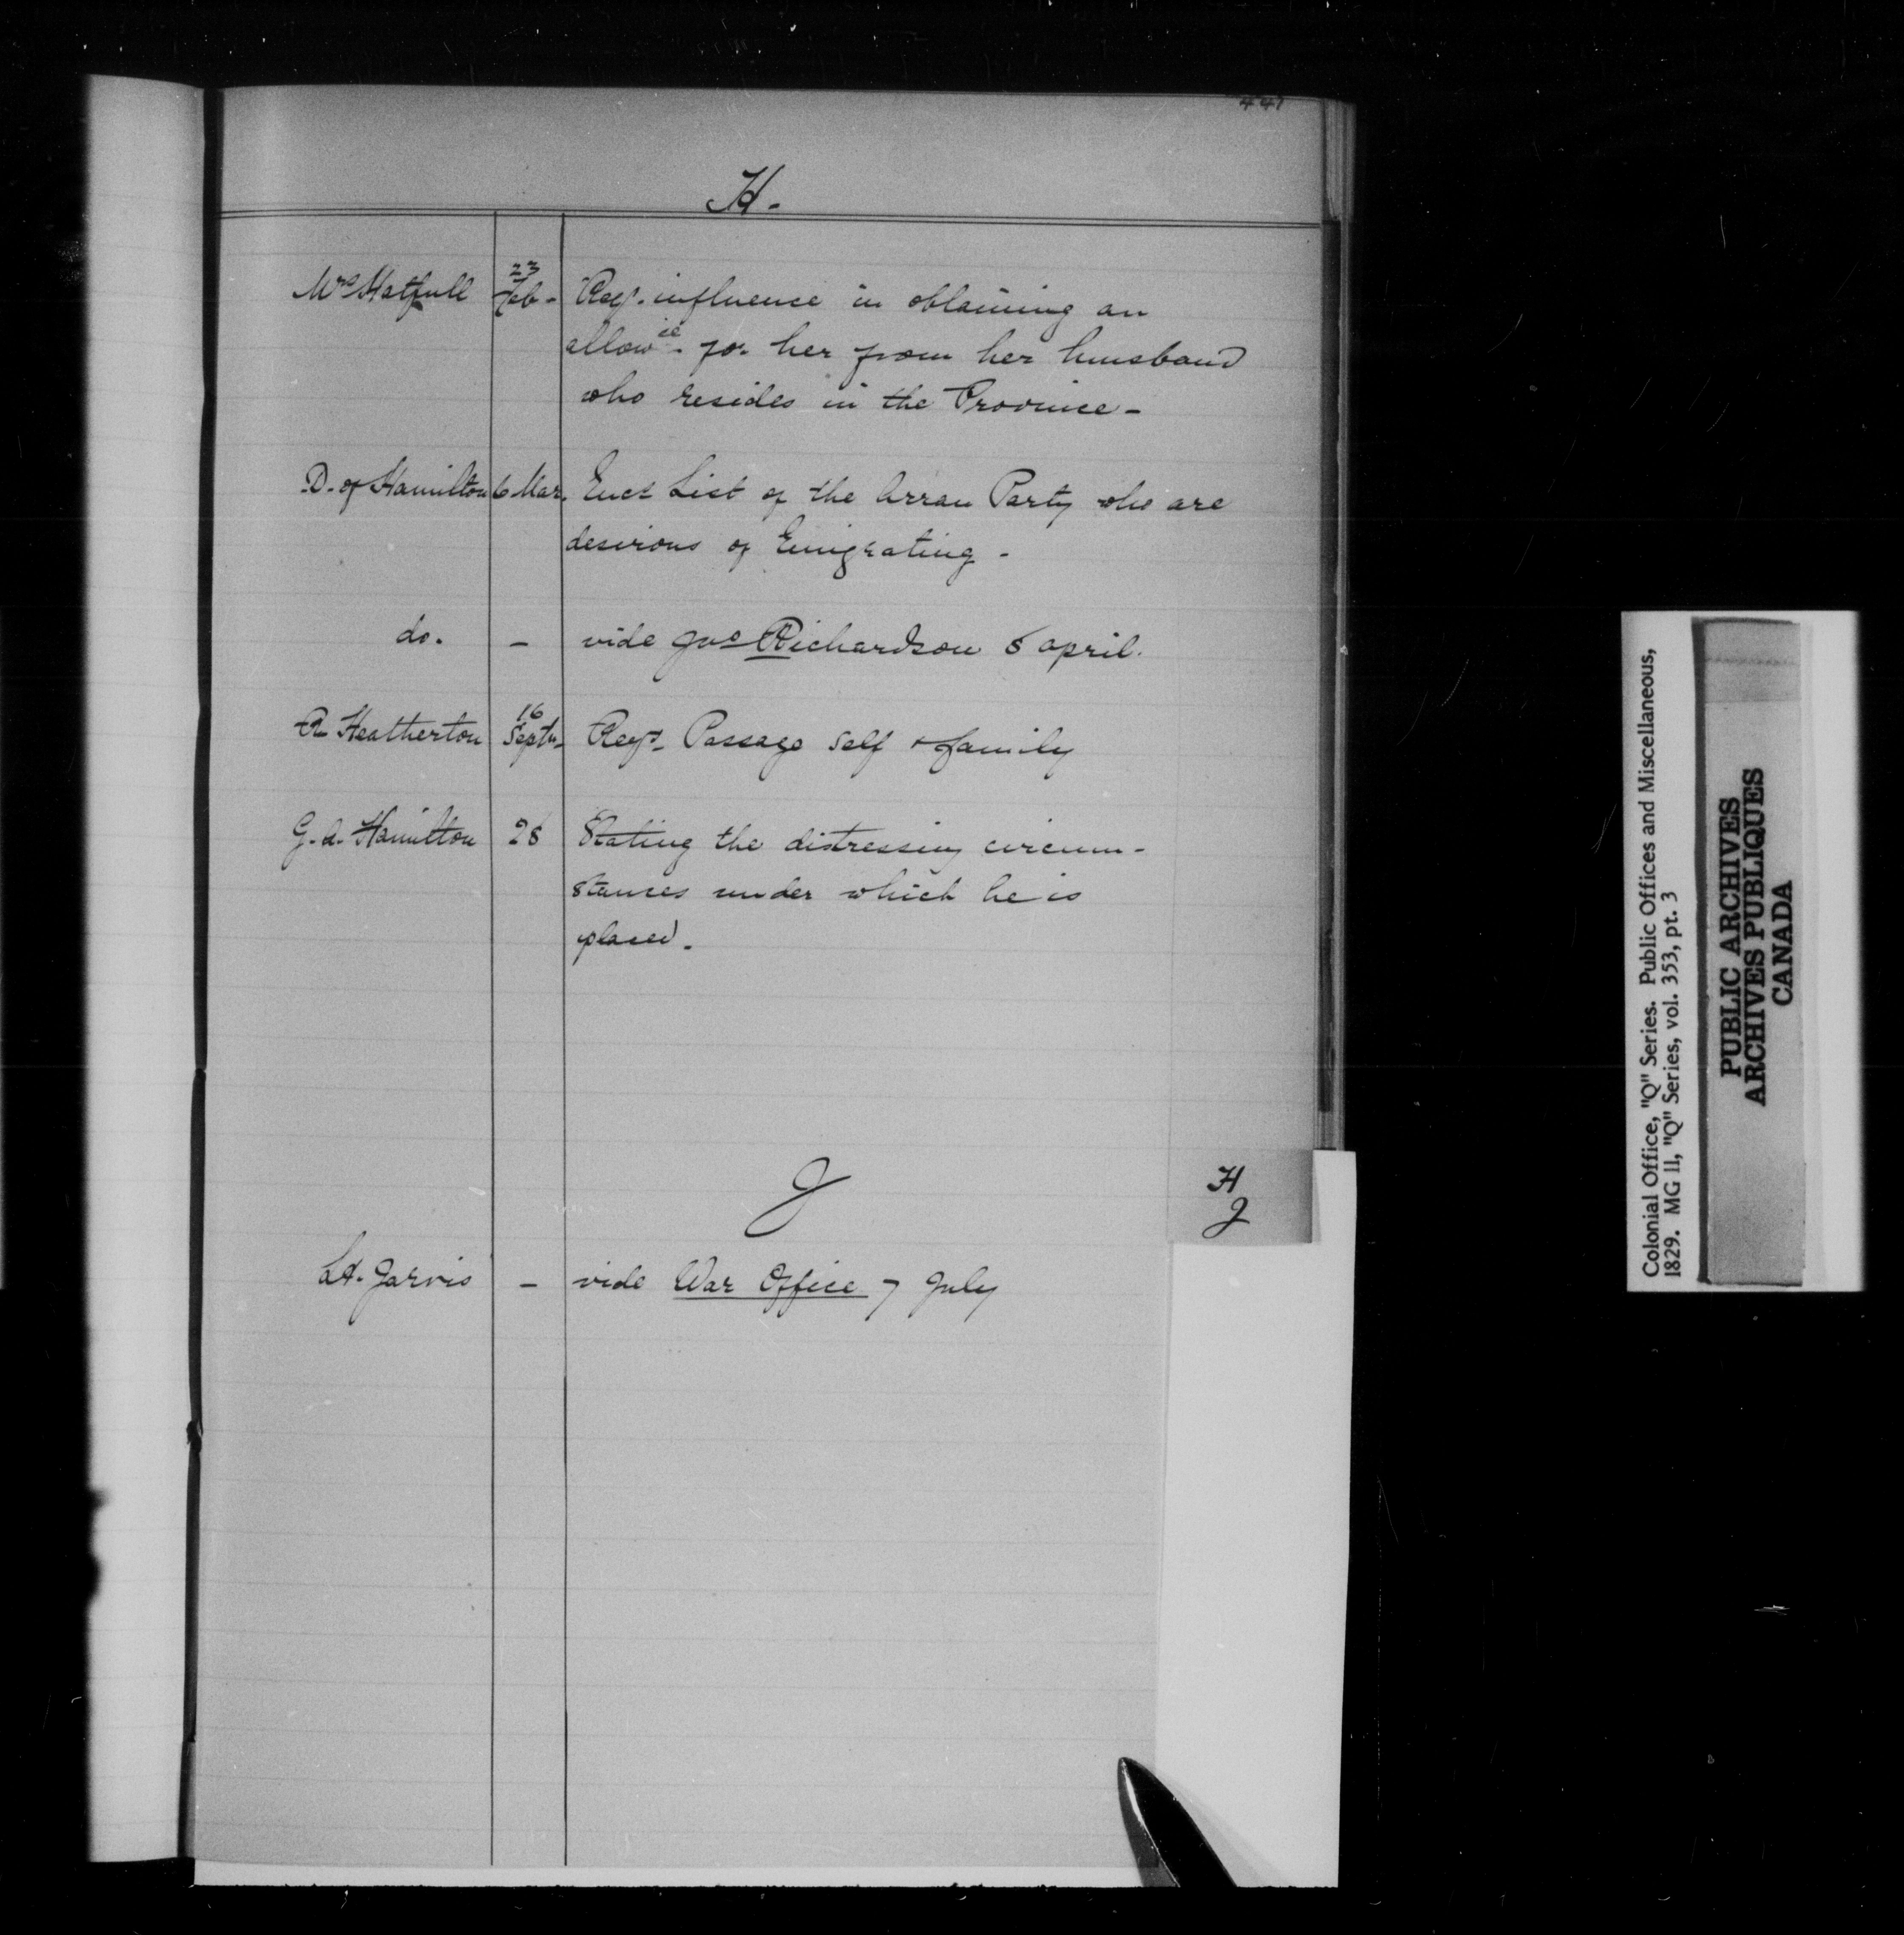 441
H.
Mrs Hatfull 23 Feb- Reqg. influence in obtaining an
allowce. for her from her husband
who resides in the Province-
D. of Hamilton 6 Mar. Encs List of the Arran Party who are
desirous of Emigrating-
do. - vide Jno Richardson 8 april.
R Heatherton 16 Septr- Reqs- Passage self & family
G. A. Hamilton 28 Stating the distressing circum-
stances under which he is
placed.
H
J
J
Lt. Jarvis - vide War Office 7 July
Colonial Office, "Q" Series. Public Offices and Miscellaneous,
1829. MG 11, "Q" Series, vol. 353, pt. 3
PUBLIC ARCHIVES
ARCHIVES PUBLIQUES
CANADA